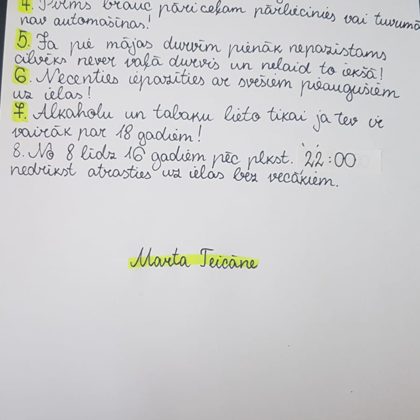 4. Pirms brauc pāri ceļam pārliecinies vai tuvumā
nav automašīnas!
5. Ja pie mājas durvīm pienāk nepazīstams
cilvēks never vaļā durvis un nelaid to iekšā!
6. Necenties iepazīties ar svešiem pieaugušiem
uz ielas!
7. Alkoholu un tabaku lieto tikai ja tev ir
vairāk par 18 gadiem!
8. No 8 līdz 16 gadiem pēc plkst. 22:00
nedrīkst atrasties uz ielas bez vecākiem.
Marta Teicāne